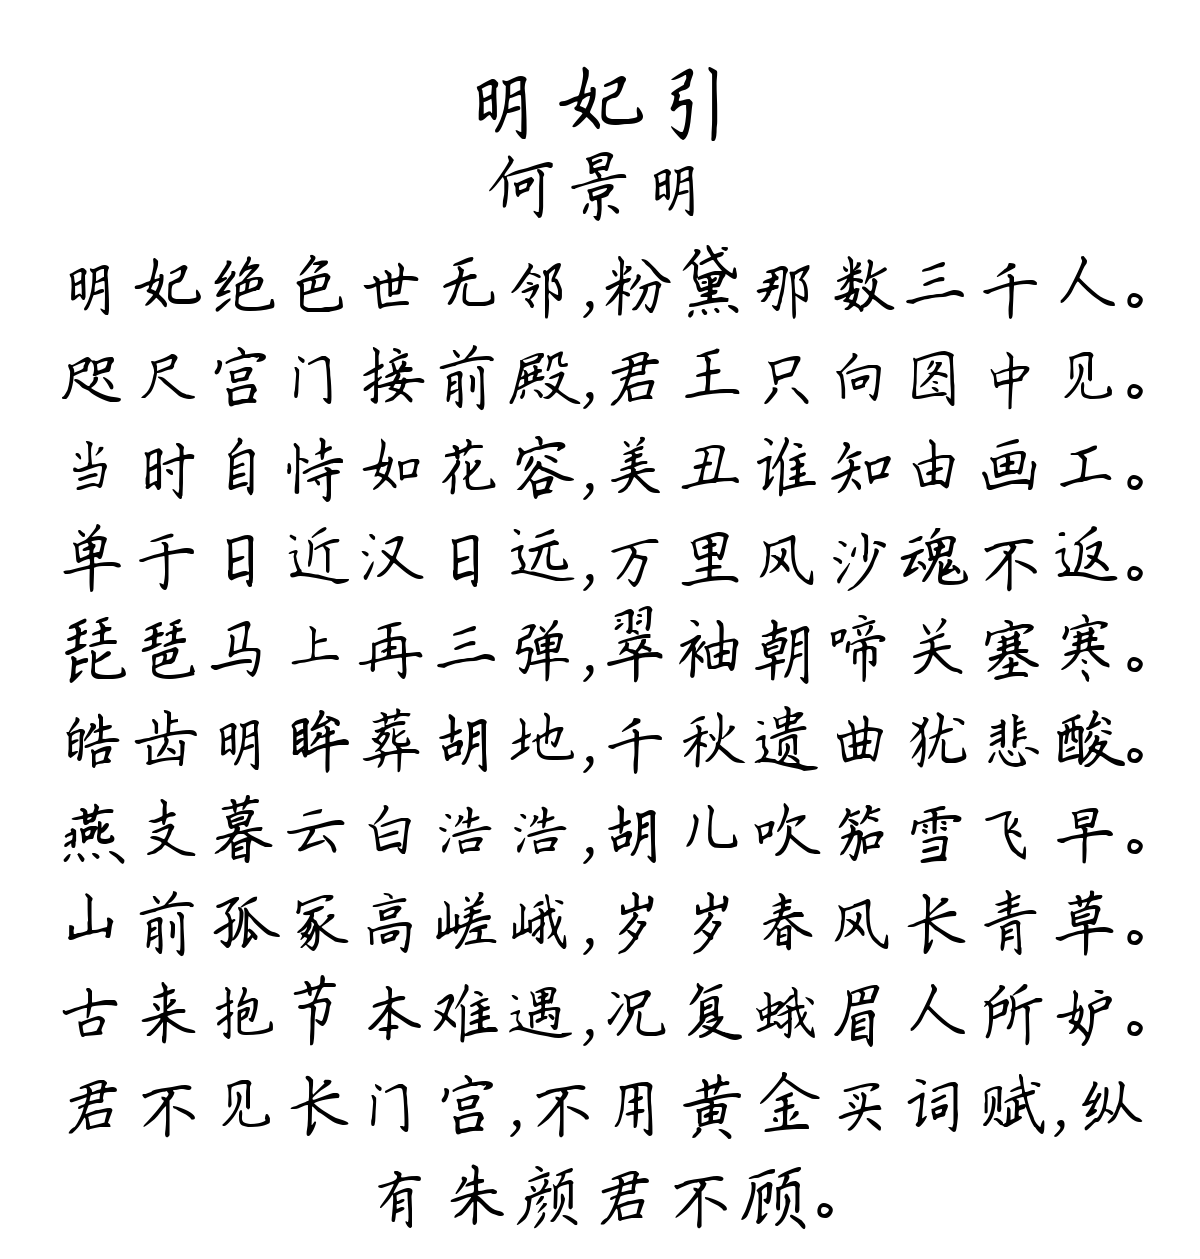 明妃引
何景明
明妃绝色世无邻,粉黛那数三千人。
咫尺宫门接前殿,君王只向图中见。
当时自恃如花容,美丑谁知由画工。
单于日近汉日远,万里风沙魂不返。
琵琶马上再三弹,翠袖朝啼关塞寒。
皓齿明眸葬胡地,千秋遗曲犹悲酸。
燕支暮云白浩浩,胡儿吹笳雪飞早。
山前孤冢高嵯峨,岁岁春风长青草。
古来抱节本难遇,况复蛾眉人所妒。
君不见长门宫,不用黄金买词赋,纵
有朱颜君不顾。